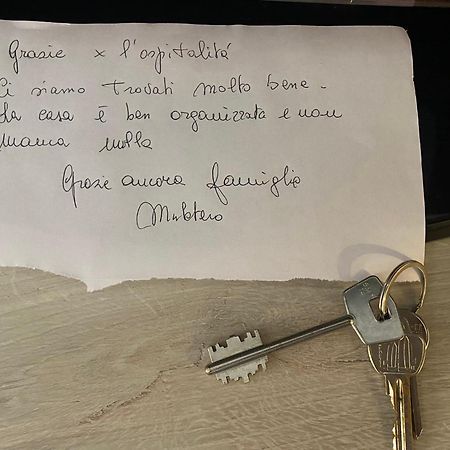 Grazie x l'ospitalitá
Ci siamo trovati molto bene.
La casa è ben organizzata e non
manca nulla
Grazie ancora famiglia